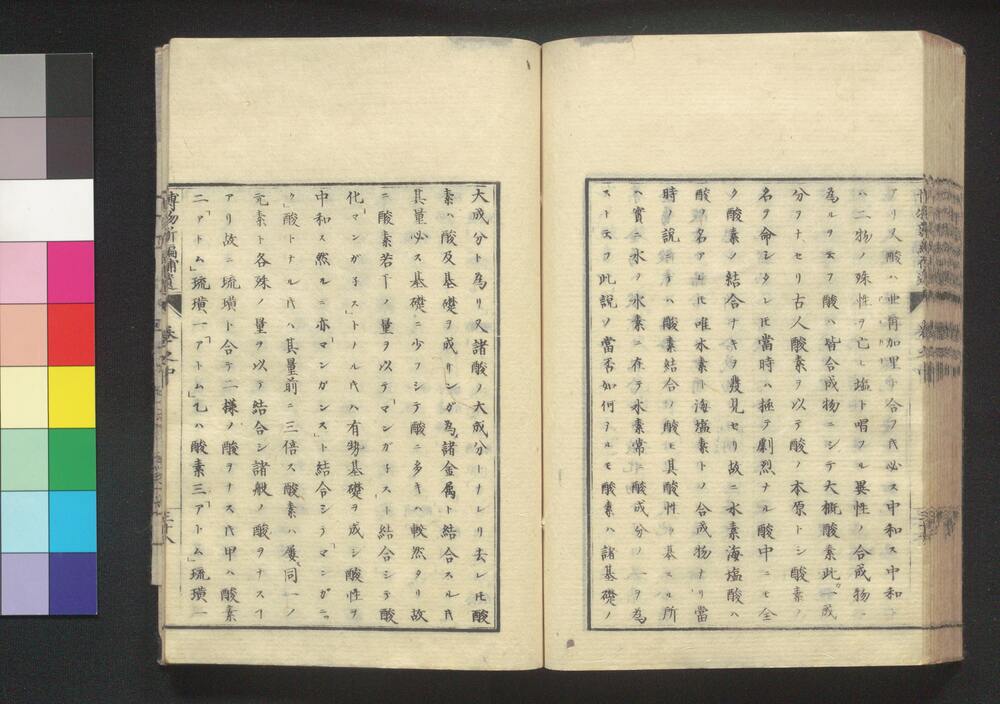 アリ又酸ハ亜爾加里ト合フ𪜈必ス中和ス中和ト
ハ二物ノ殊性ヲ亡ヒ塩ト唱フル異性ノ合成物ト
為ルヲ云フ酸ハ皆合成物ニシテ大概酸素此カ一成
分ヲナセリ古人酸素ヲ以テ酸ノ本原トシ酸素ノ
名ヲ命シタレ𪜈當時ハ極テ劇烈ナル酸中ニモ全
ク酸素ノ結合ナキヲ發見セリ故ニ水素海塩酸ハ
酸ヲ名アレ𪜈唯水素ト海塩素トノ合成物ナリ當
時ノ説ニテハ酸素結合ノ酸モ其酸性ノ基スル所
ハ實ニ水ノ水素ニ在テ水素常ニ酸成分ノ一ヲ為
ストモフ此説ノ當否如何ヲルモ酸素ハ諸基礎ノ
大成分ト為リ又諸酸ノ大成分トナレリ去レ𪜈酸
素ハ酸及基礎ヲ成サンガ為諸金属ト結合スル𪜈
其量必ス基礎ニ少フシテ酸ニ多キハ較然タリ故
ニ酸素若干ノ量ヲ以テ「マンガネス」ト結合シテ酸
化「マンガネス」トナル𪜈ハ有勢基礎ヲ成シ酸性ヲ
中和ス然ルニ亦「マンガンス」ト結合シテ「マンガニッ
ク」酸トナル𪜈ハ其量前ニ三倍ス酸素ハ屢同一ノ
元素ト各殊ノ量ヲ以テ結合シ諸般ノ酸ヲナスヿ
アリ故ニ琉璜ト合テ二様ノ酸ヲナス𪜈甲ハ酸素
二「アトム」琉璜一「アトム」乙ハ酸素三「アトム」琉璜一
博物新編補遺
巻之中
三十八